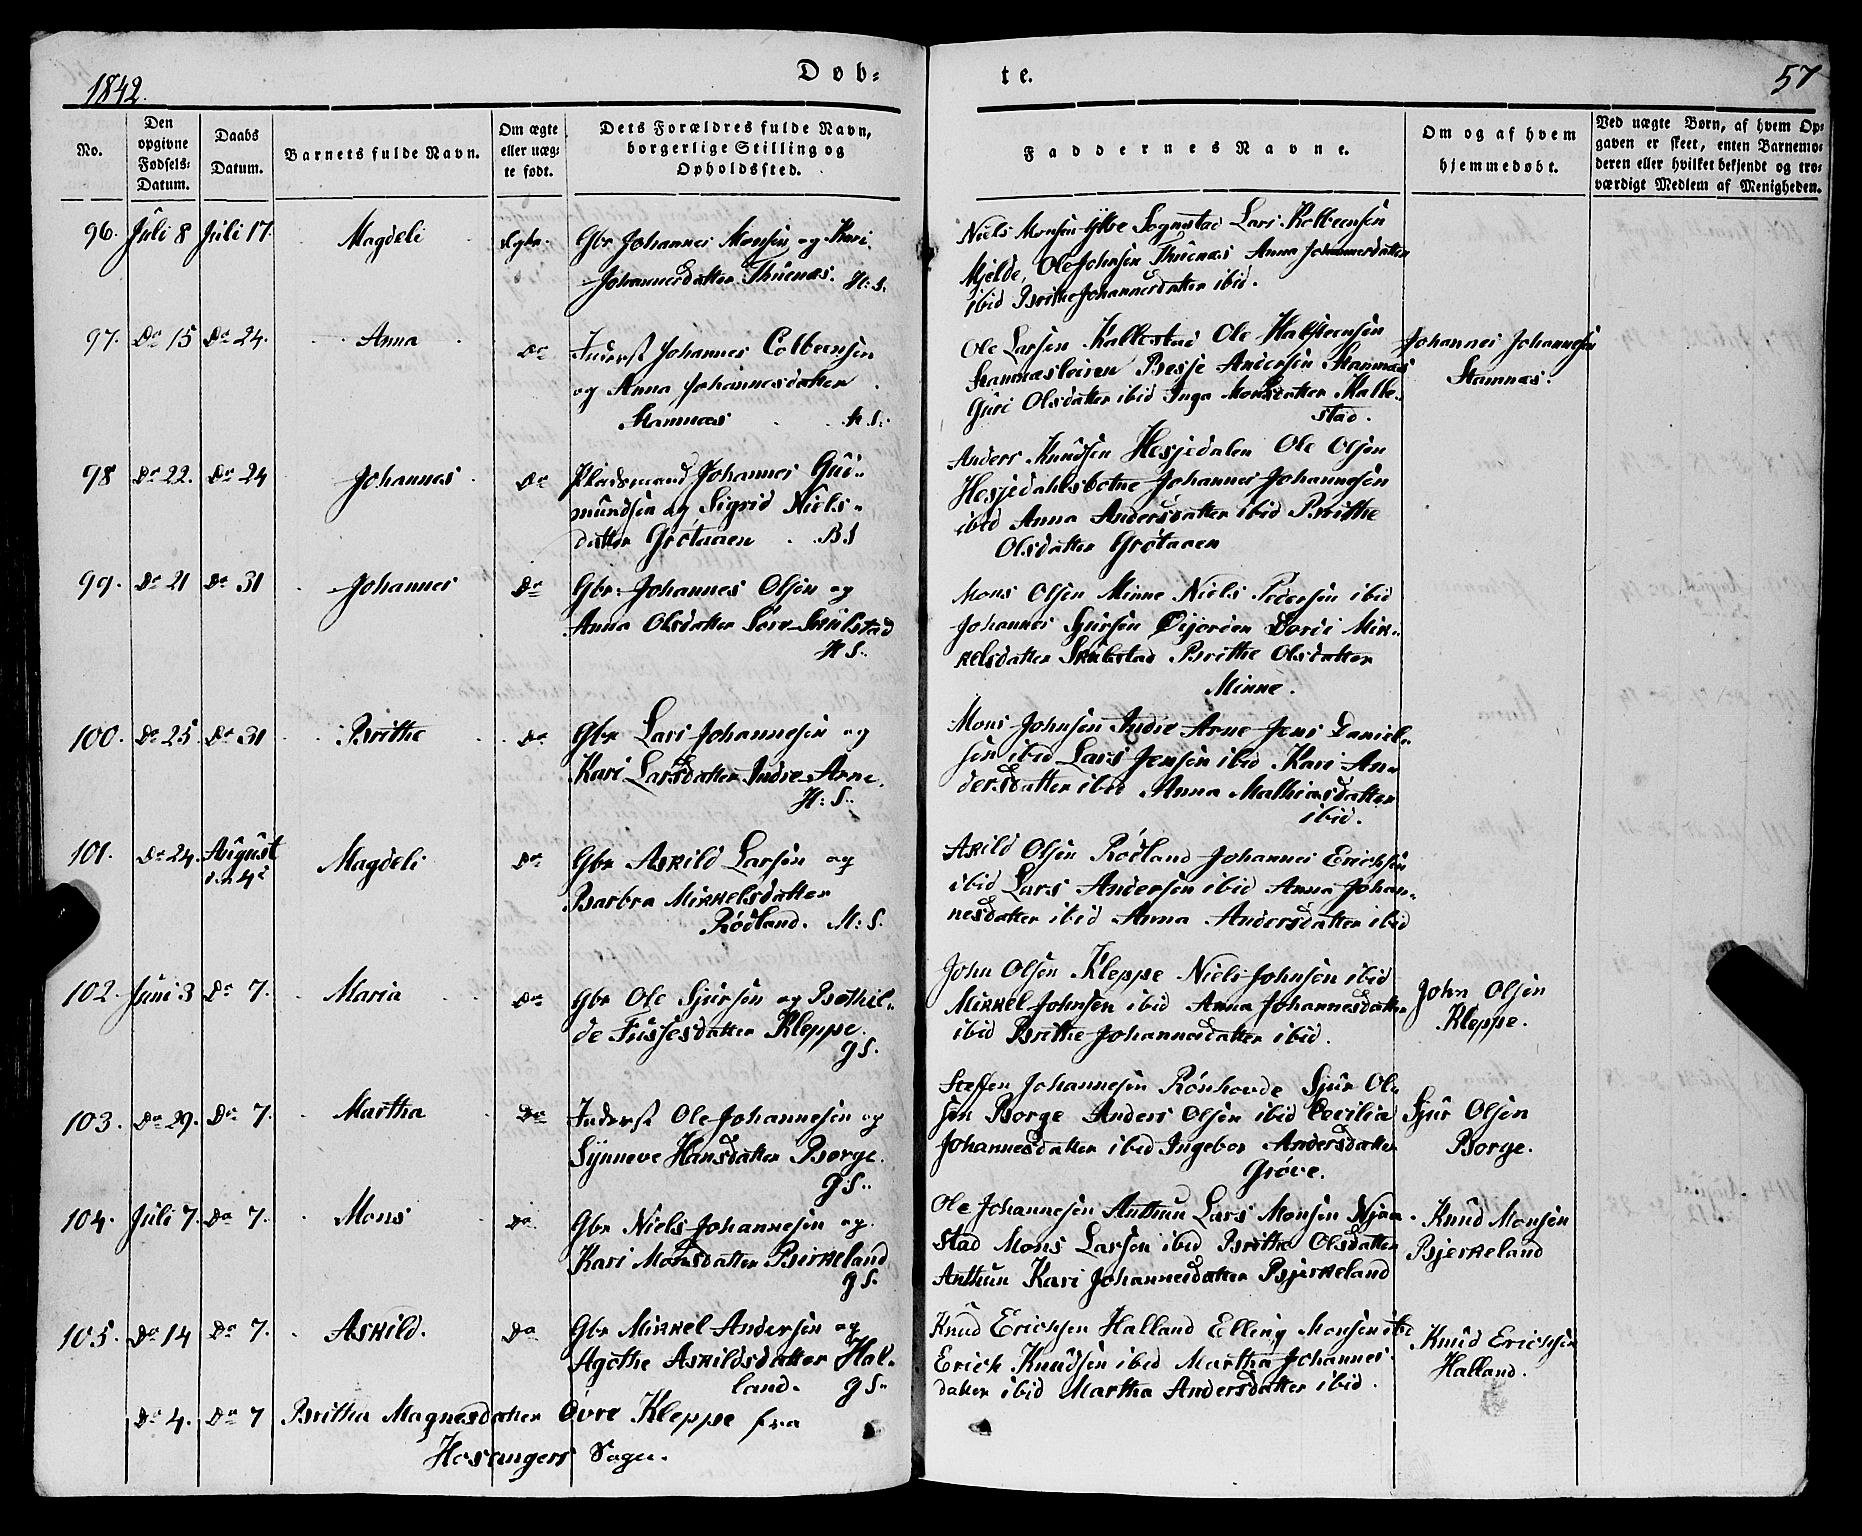 1842.
Døb=
te.
57
No.
Den
opgivne
Fødsels-
Datum.
Daabs
Datum.
Barnets fulde Navn.
Om ægte
eller uæg-
te født.
Dets Forældres fulde Navn,
borgerlige Stilling og
Opholdssted.
Faddernes Navne.
Om og af hvem
hjemmedøbt.
Ved uægte Børn, af hvem Op-
gaven er skeet, enten Barnemo-
deren eller hvilket bekjendt og tro-
værdigt Medlem af Menigheden.
96. Juli 8 Juli 17. Magdeli
Gbr Johannes Monsen og Kari
Johannesdatter Thuenæs. H: S.
Niels Monsen Sognstad Lars Kolbeensen
Mjelde, Ole Johnsen Thuenæs Anna Johannesdatter
ibid Brithe Johannesdatter ibid.
97. Do 15 Do 24. Anna Do
Inderst Johannes Colbeensen
og Anna Johannesdatter
Stamnæs H: S:
Ole Larsen Kallestad Ole Halsteensen
Stamnæsleiren Besse Andersen Stamnæs
Guri Olsdatter ibid Inga Monsdatter Kalle-
stad.
Johannes Johannesen
Stamnæs.
98 Do 22. Do 24 Johannes Do
Pladsmand Johannes Gud-
mundsen og Sigrid Niels-
datter Grøtaaen B S
Anders Knudsen Hesjedalen Ole Olsen
Hesjedahlsbotne Johannes Johannesen
ibid Anna Andersdatter ibid Brithe
Olsdatter Grøtaaen
99. Do 21 Do 31 Johannes Do
Gbr: Johannes Olsen og
Anna Olsdatter Søre Skulstad
H S.
Mons Olsen Minne Niels Pedersen ibid
Johannes Sjursen Øijorden Dordi Mik-
kelsdatter Skulstad Brithe Olsdatter
Minne.
100. Do 25. Do 31 Brithe Do
Gbr Lars Johannesen og
Kari Larsdatter Indre Arne.
H: S.
Mons Johnsen Indre Arne Jens Daniel-
sen ibid Lars Jensen ibid Kari An-
dersdatter ibid Anna Mathiasdatter
ibid.
101. Do 24. August
den 4de Magdeli Do
Gbr Askild Larsen og
Barbra Mikkelsdatter
Rødland. H: S.
Askild Olsen Rødland Johannes Ericksen
ibid Lars Andersen ibid Anna Johan-
nesdatter ibid Anna Andersdatter ibid
102. Juni 3 Do 7. Maria Do
Gbr Ole Sjursen og Bothil-
de Fussesdatter Kleppe.
g S.
John Olsen Kleppe Niels Johnsen ibid
Mikkel Johnsen ibid Anna Johannesdatter
ibid Brithe Johannesdatter ibid.
John Olsen
Kleppe.
103. Do 29. Do 7. Martha Do
Inderst Ole Johannesen og
Synneve Hansdatter Borge.
g S.
Steffen Johannesen Rønhovde Sjur Ol-
sen Borge Anders Olsen ibid Cecilia
Johannesdatter ibid Ingebor Andersdatter
Grøve.
Sjur Olsen
Borge.
104. Juli 7. Do 7. Mons Do
Gbr Niels Johannesen og
Kari Monsdatter Birkeland
g S.
Ole Johannesen Anthun Lars Monsen Njaa-
stad Mons Larsen ibid Brithe Olsdatter
Anthun Kari Johannesdatter Bjerkeland
Knud Monsen
Bjerkeland
105. Do 14 Do 7. Askild. Do
Gbr Mikkel Andersen og
Agathe Askildsdatter Hal-
land. g S.
Knud Ericksen Halland Elling Monsen ibd
Erick Knudsen ibid Martha Johannes-
datter ibid Martha Andersdatter ibid.
Knud Ericksen
Halland.
Do 4. Do 7 Britha Magnesdatter Øvre Kleppe fra
Hosangers Sogn.